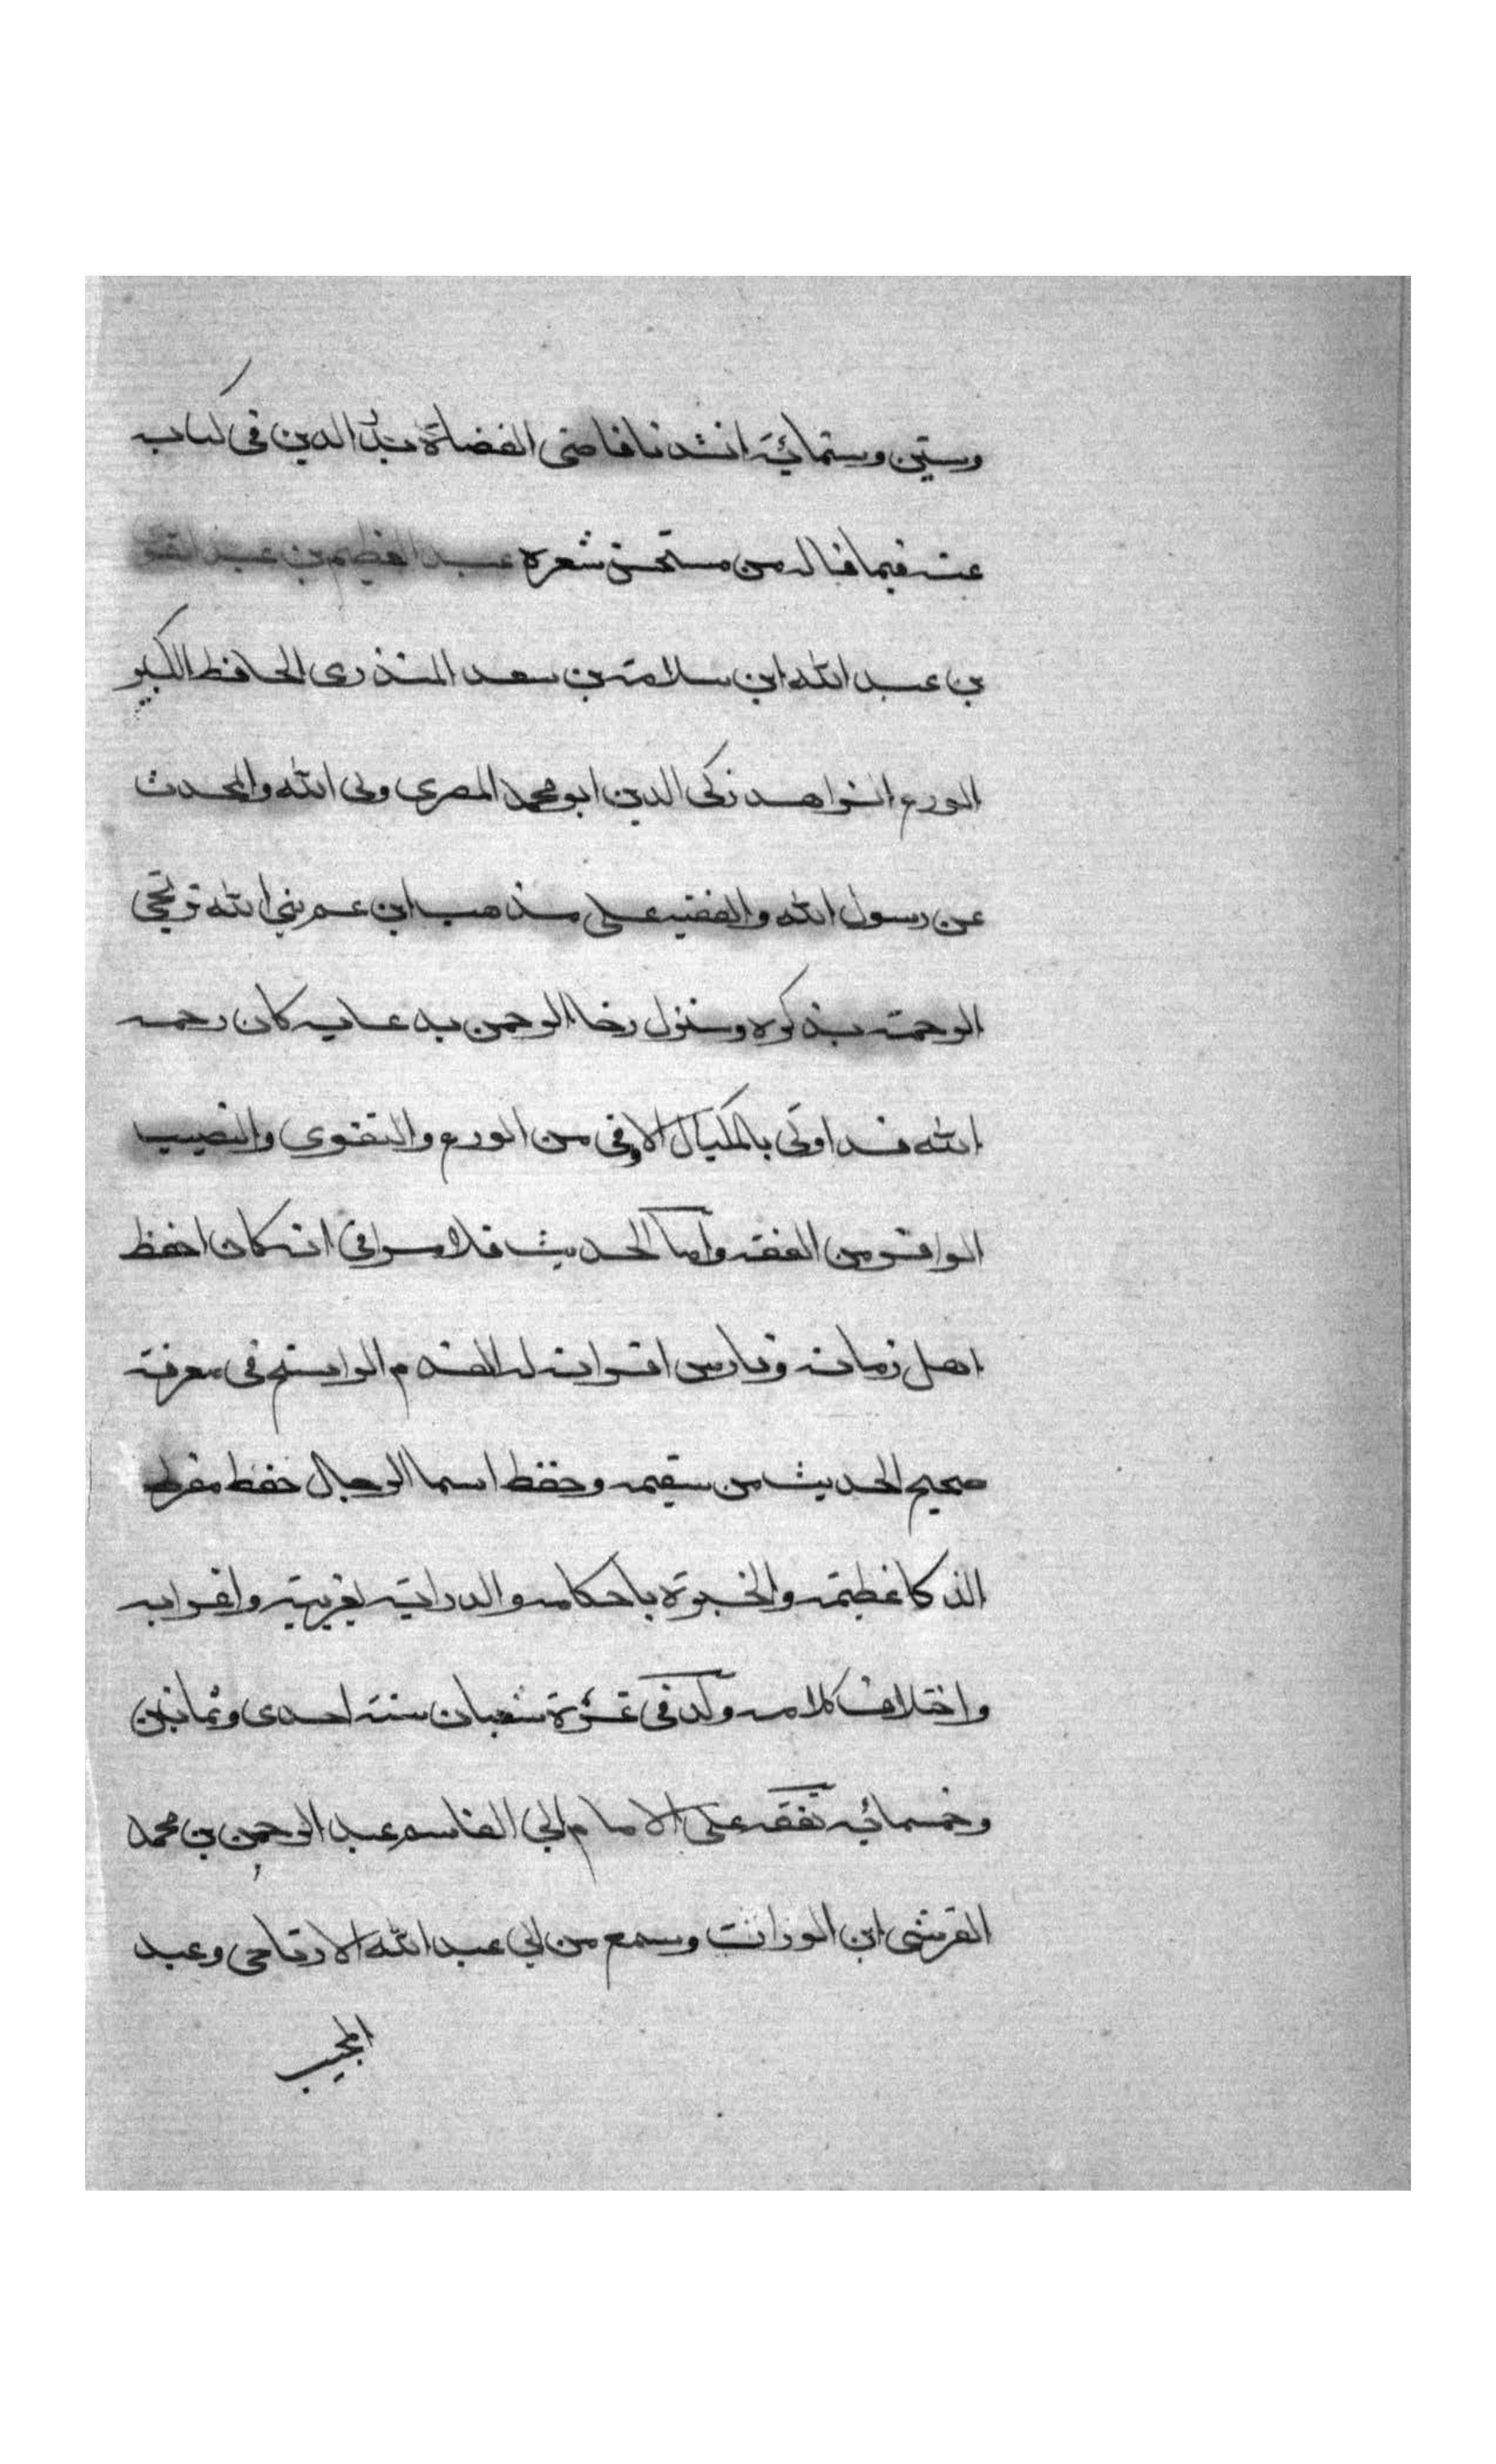 وستين وستمائة انشدنا قاضى القضاة بدر الدين فى كتابه
عنه فيما قاله من مستحسن شعره عبد العظيم بن عبد القوى
بن عبد الله ابن سلامة بن سعد المنذرى الحافظ الكبير
الورع الزاهد زكى الدين ابو محمد المصرى ولى الله والمحدث
عن رسول الله والفقيه على مذهب ابن عم نبى الله ترتجى
الرحمة بذكره وستنزل رضا الرحمن به عايه كان رحمه
الله قد اوتى بالمكيال الاوفى من الورع والتقوى والنصيب
الوافر من الفقه واما الحديث فلا مرا فى انه كان احفظ
اهل زمانه وفارس اقرانه له القدم الراسخ فى معرفة
صحيح الحديث من سقيمه وحفظ اسما الرجال حفظ مفرط
الذكا عظيمه والخبرة باحكامه والدراية بغريبه واعرابه
واختلاف كلامه ولد فى غرة شعبان سنة احدى وثمانين
وخمسمائة تفقه على الامام ابى القاسم عبد الرحمن بن محمد
القرشى ابن الوراثت وسمع من ابى عبد الله الارتاحى وعبد
المجيب